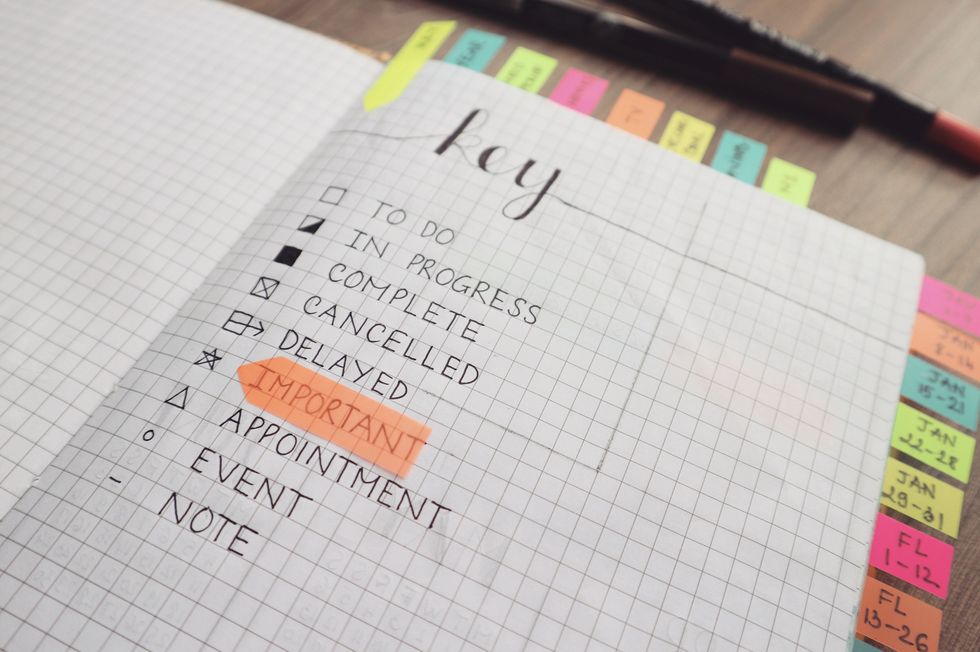 key
TO DO
IN PROGRESS
COMPLETE
CANCELLED
DELAYED
IMPORTANT
APPOINTMENT
EVENT
NOTE
JAN
8-14
JAN
15-21
JAN
22-28
JAN
29-31
FL
1-12
FL
13-26